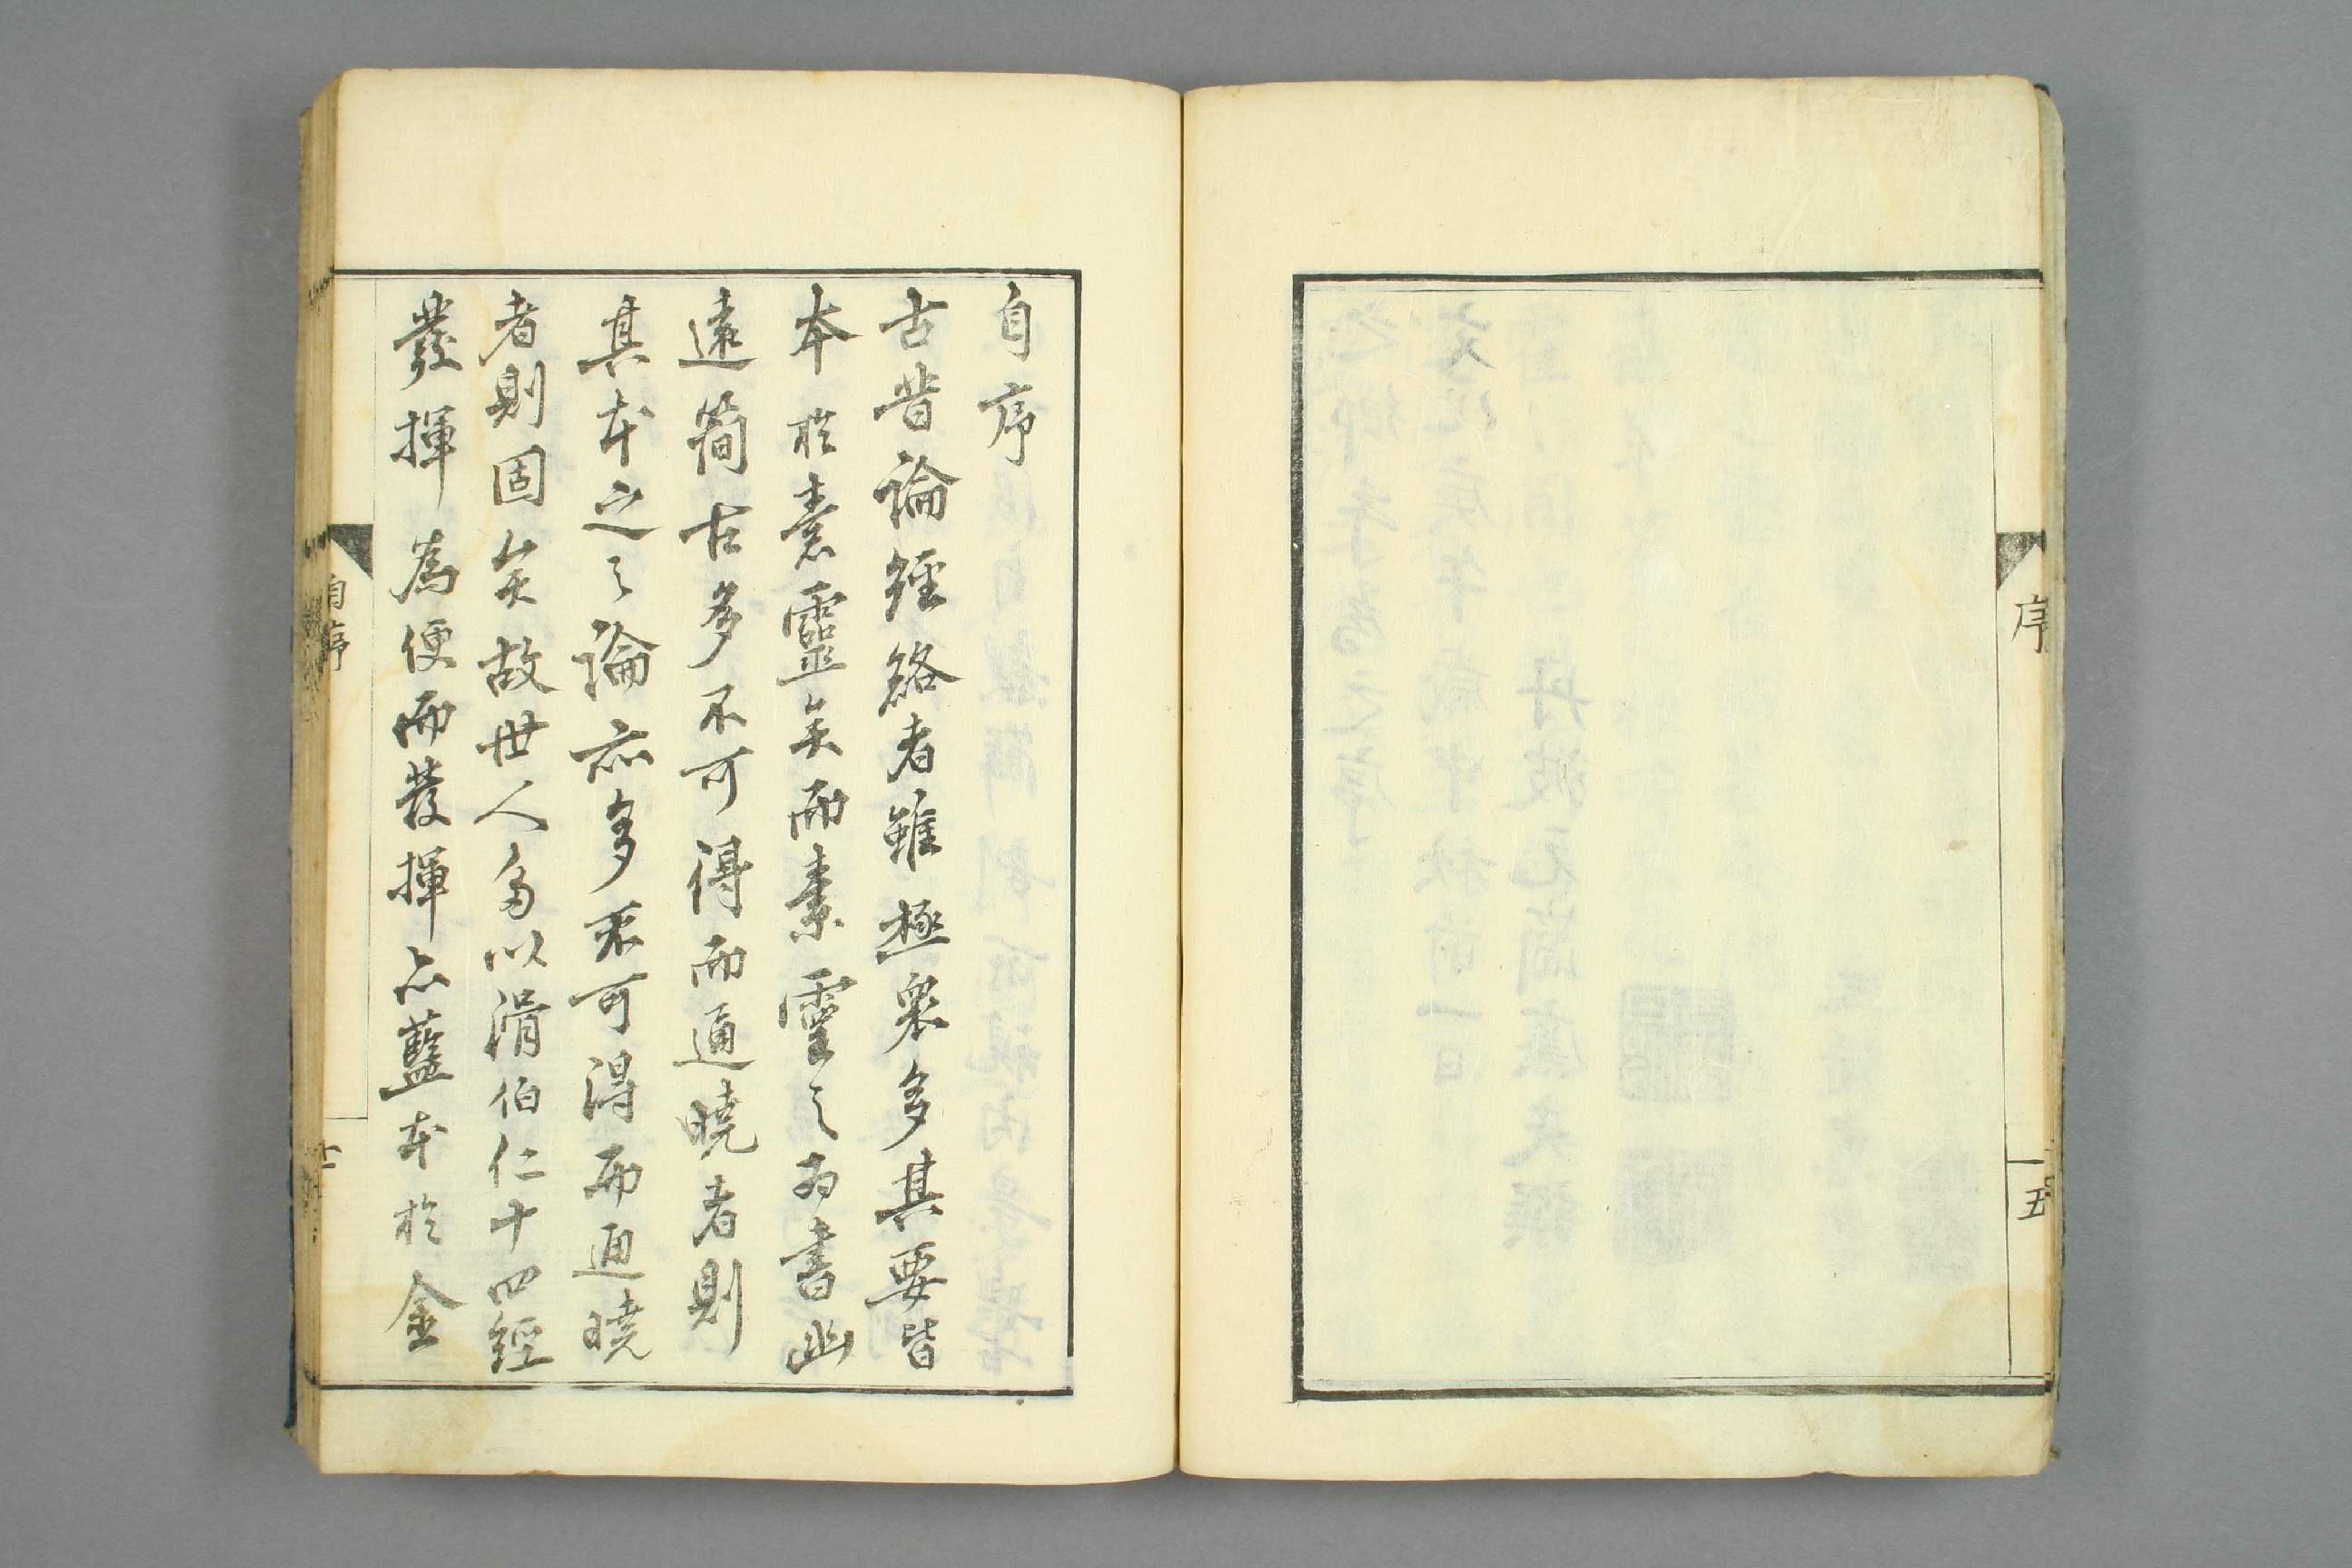 序
五
自序
古昔論經絡者雖極衆多其要皆
本於素靈矣而素靈之為書幽
遠簡古多不可得而通曉者則
其本之之論亦多不可得而通曉
者則固矣故世人多以滑伯仁十四經
發揮為便而發揮亦藍本於金
自序